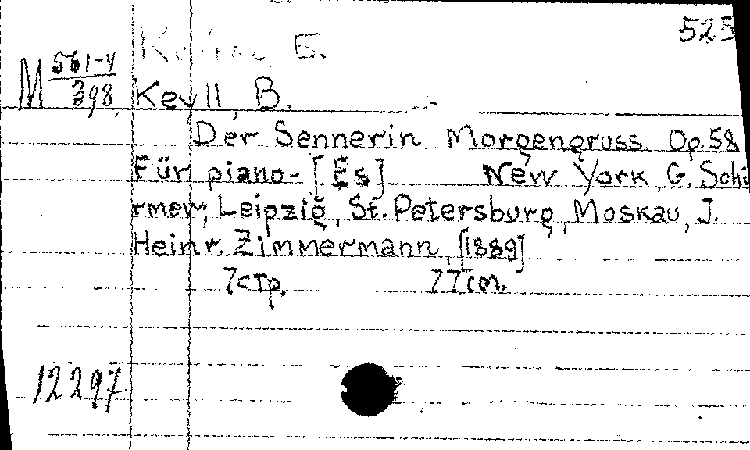 525
M 561-4
398
Keyll, B.
Der Sennerin Morgengruss. Op. 58
Für piano- [Es] New York, G. Schi
rmer; Leipzig, St. Petersburg, Moskau, J.
Heinr. Zimmermann, [1889]
7стр. 27см.
12297